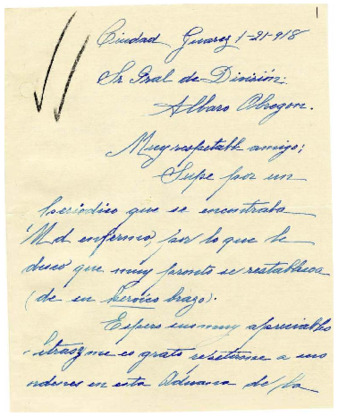 1
Ciudad Juarez 1-21-918
Sr Gral de División.
Alvaro Obregon.
Muy respetable amigo;
Supe por un
periodico que se encontraba
Ud enfermo, por lo que le
deseo que muy pronto se restablesca
(de su heróico brazo).
Espero sus muy apreciables
letras y me es grato reiterarme a sus
ordenes en esta Aduana de